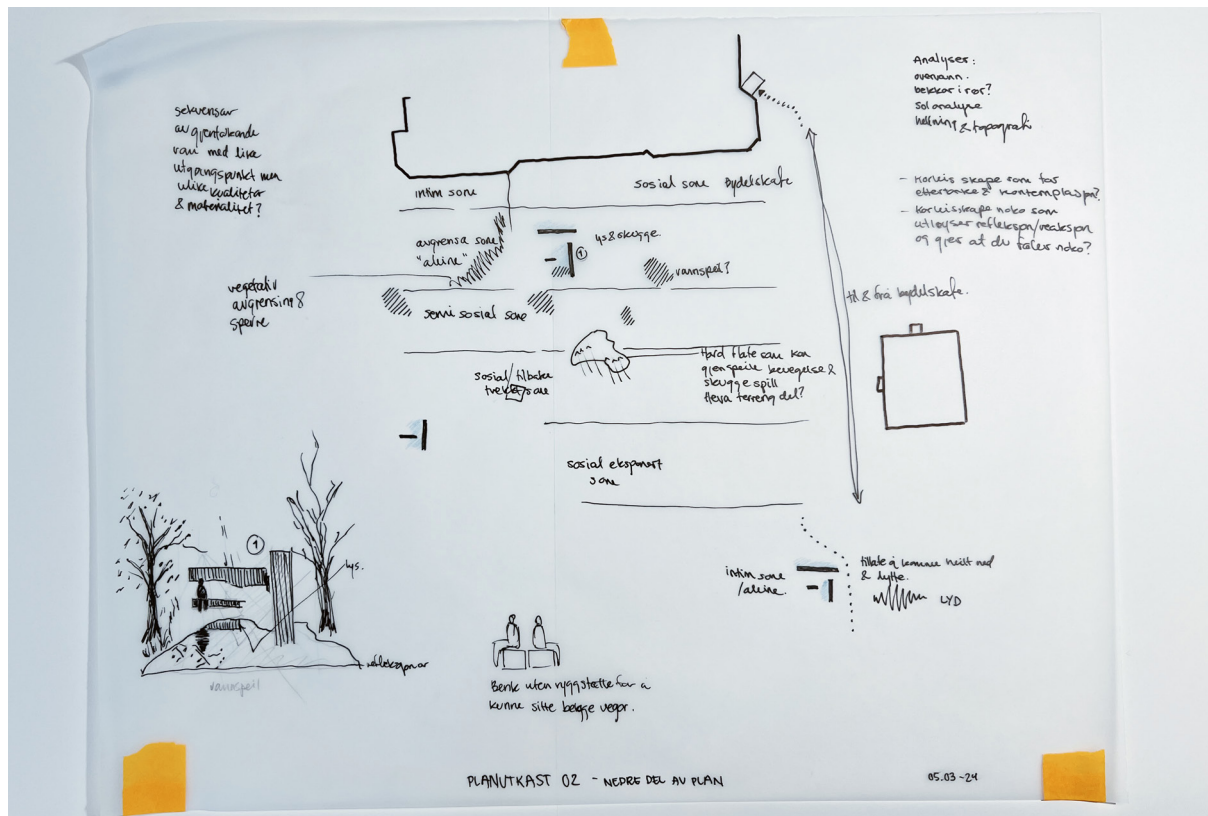 sekvensar
av gjentakande
rom med like
utgangspunkt men
ulike kvalitetar
& materialitet?
Analyser:
overvann.
bekkar i rør?
Sol analyse
helning & topografi
- Korleis skape rom for
ettertanke & kontemplasjon?
- Korleis skape noko som
utløyser refleksjon/reaksjon
og gjer at du føler noko?
intim sone
sosial sone Bydelskafe
avgrensa sone
"aleine"
1
lys & skugge.
vannspeil?
vegetativ
avgrensing &
sperre
semi sosial sone
til & frå bydelskafe.
sosial/tilbake
trekt sone
Hard flate som kan
gjenspeile bevegelse &
skugge spill
heva terreng del?
sosial eksponert
sone
1
lys.
refleksjonar
vannspeil
intim sone
/aleine.
tillate å komme heilt ned
& lytte.
LYD
Benk uten ryggstøtte for å
kunne sitte begge vegar.
PLANUTKAST 02 - NEDRE DEL AV PLAN
05.03-24